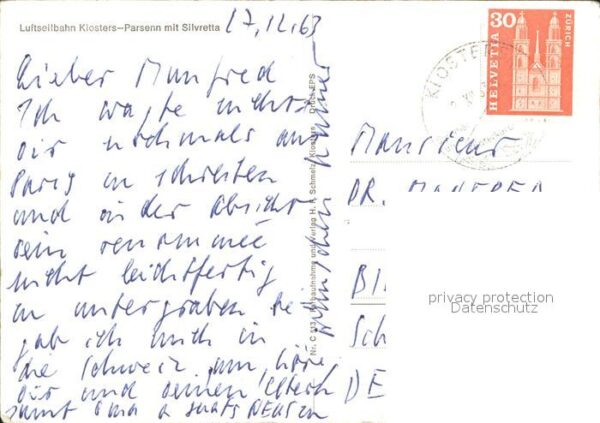 Luftseilbahn Klosters–Parsenn mit Silvretta
17.12.63
Lieber Manfred
Ich wagte nicht
dir nochmals aus
Paris zu schreiben
und in der Absicht
dein renommée
nicht leichtfertig
zu untergraben be
gab ich mich in
die Schweiz um
dir und deinen Eltern
samt
wünschen
Nr. C 313 Verlag H. F. Schmelz, Klosters Druck EPS
HELVETIA
30
ZÜRICH
KLOSTERS
Monsieur
DR. MANFRED
BI
Sch
DE
privacy protection
Datenschutz